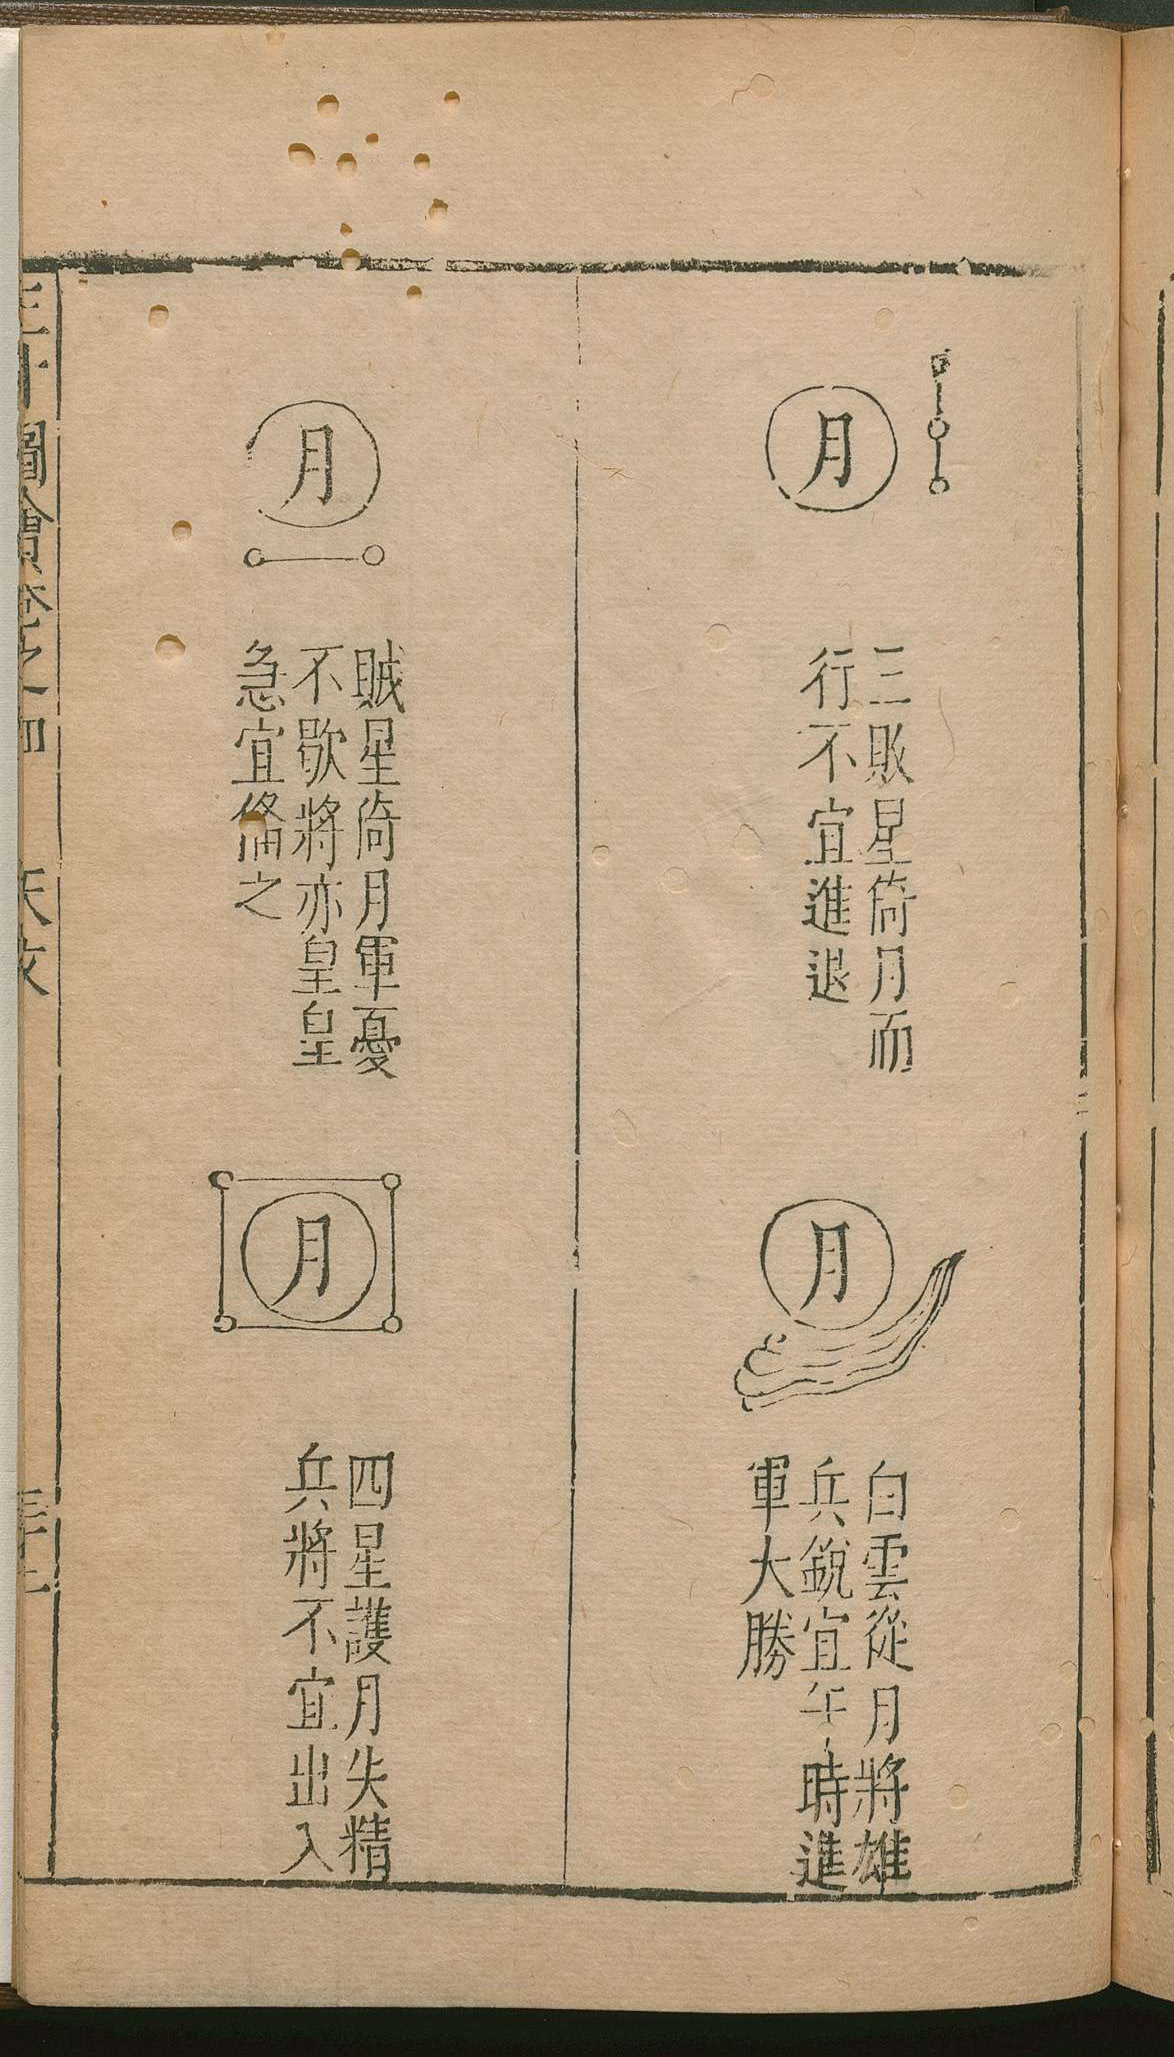 月
三敗星倚月而
行不宜進退
月
白雲從月將雄
兵銳宜午時進
軍大勝
月
賊星倚月軍憂
不歇將亦皇皇
急宜俻之
月
四星護月失精
兵將不宜出入
三才圖會卷之四
天文